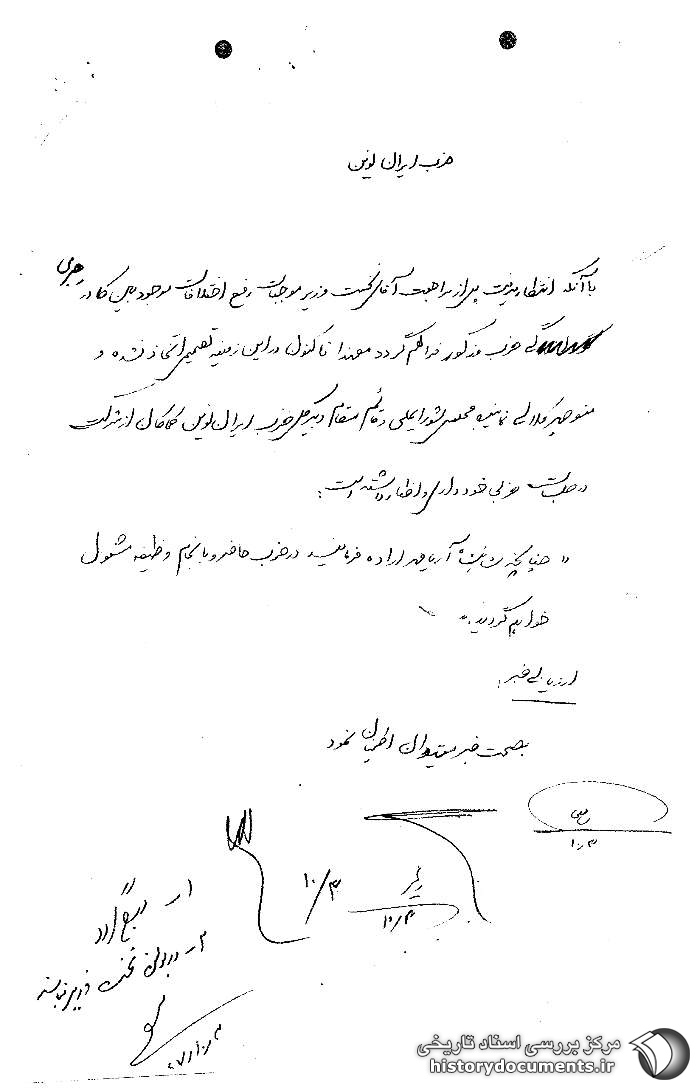 حزب ایران نوین
با آنکه انتظار میرفت پس از مراجعت آقای نخست وزیر موجبات رفع اختلافات موجود بین کادر رهبری
حزب مذکور فراهم گردد معهذا تاکنون در این زمینه تصمیمی اتخاذ نشده و
منوچهر کلالی نماینده مجلس شورایملی و قائم مقام دبیرکل حزب ایران نوین کماکان از شرکت
در جلسات حزبی خودداری و اظهار داشته است:
« چنانچه شاهنشاه آریامهر اراده فرمایند در حزب حاضر و بانجام وظیفه مشغول
خواهم گردید. »
ارزیابی خبر:
بصحت خبر میتوان اطمینان نمود
۱۰/۳
۱۰/۳
۱۰/۴
۱-
۲- در بولتن نخست وزیر
مرکز بررسی اسناد تاریخی
historydocuments.ir